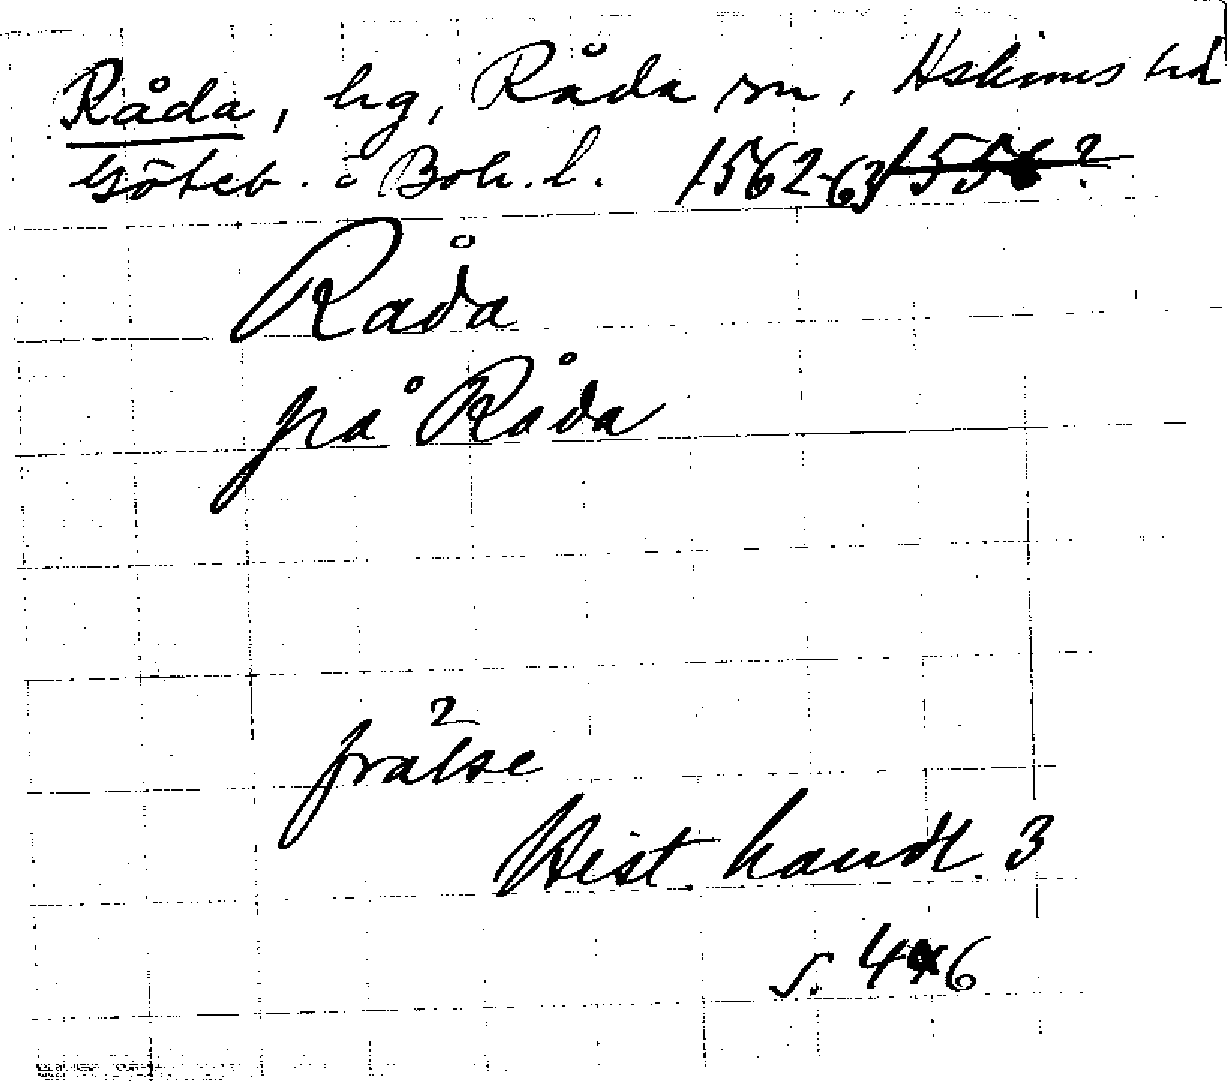 Råda, hg, Råda sn, Askims hd
Göteb. o Boh. l. 1562-63 1556?
Råda
på Råda
2
frälse
Hist. handl. 3
s. 46